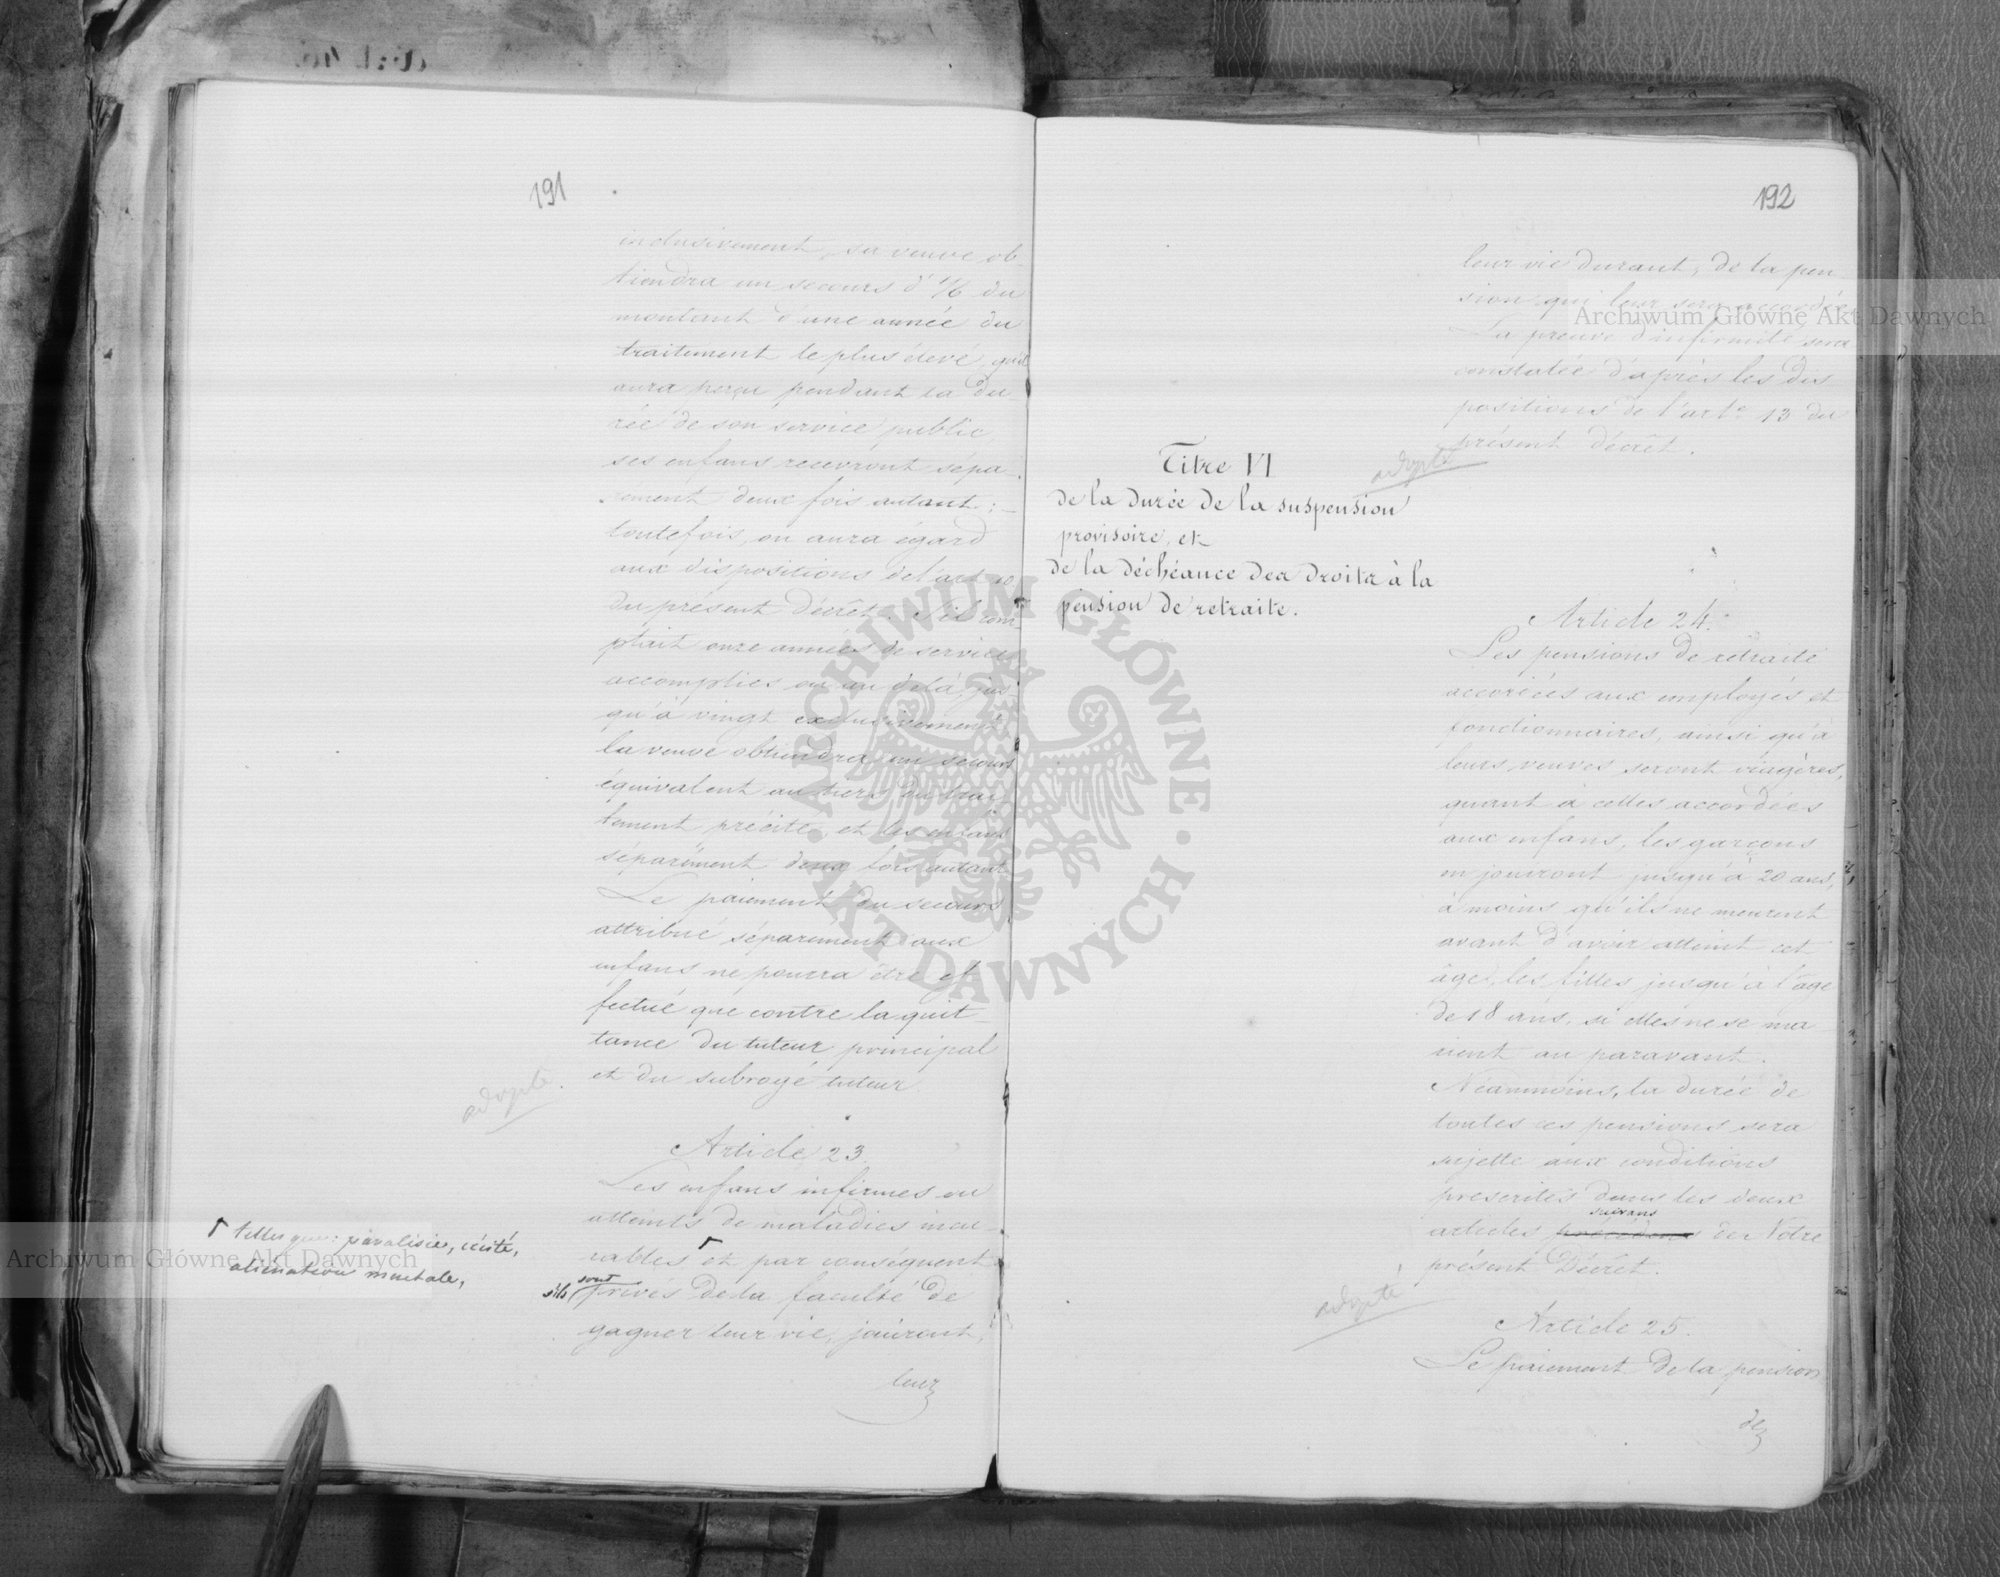 191
inclusivement, sa veuve ob
tiendra un secours d'1/6 du
montant d'une année du
traitement le plus élevé, qu'il
aura perçu pendant la du-
rée de son service public,
ses enfans recevront sépa-
rement deux fois autant; –
toutefois, on aura égard
aux dispositions de l'art 10
du présent Décrêt. S'il com-
ptait onze années de service
accomplies ou au delà, jus-
qu'à vingt exclusivement,
la veuve obtiendra un secours
équivalent au tiers du trai-
tement précité, et les enfans
séparément deux fois autant
Le paiement du secours
attribué séparément aux
enfans ne pourra être ef
fectué que contre la quit-
tance du tuteur principal
et du subrogé tuteur.
adopté.
Article 23.
Les enfans infirmes ou
atteints de maladies incu-
rables ┌ et par conséquent
s'ils sont privés de la faculté de
gagner leur vie, jouiront,
┌ telles que: paralisie, cécité,
aliénation mentale,
leur
192
leur vie durant, de la pen
sion qui leur sera accordée
La preuve d'infirmité sera
constatée d'après les dis
positions de l'art. 13 du
présent décrêt.
adopté
Titre VI
de la durée de la suspension
provisoire, et
de la déchéance des droits à la
pension de retraite.
Article 24.
Les pensions de retraite
accordées aux employés et
fonctionnaires, ainsi qu'à
leurs veuves seront viagères,
quant à celles accordées
aux enfans, les garçons
en jouiront jusqu'à 20 ans,
à moins qu'ils ne meurent
avant d'avoir atteint cet
âge, les filles jusqu'à l'age
de 18 ans, si elles ne se ma
rient au paravant.
Néanmoins, la durée de
toutes ces pensions sera
sujette aux conditions
prescrites dans les deux
suivans
articles précédens de Notre
présent Décret.
adopté
Article 25.
Le paiement de la pension
de
Archiwum Główne Akt Dawnych
Archiwum Główne Akt Dawnych
ARCHIWUM GŁÓWNE · AKT DAWNYCH ·